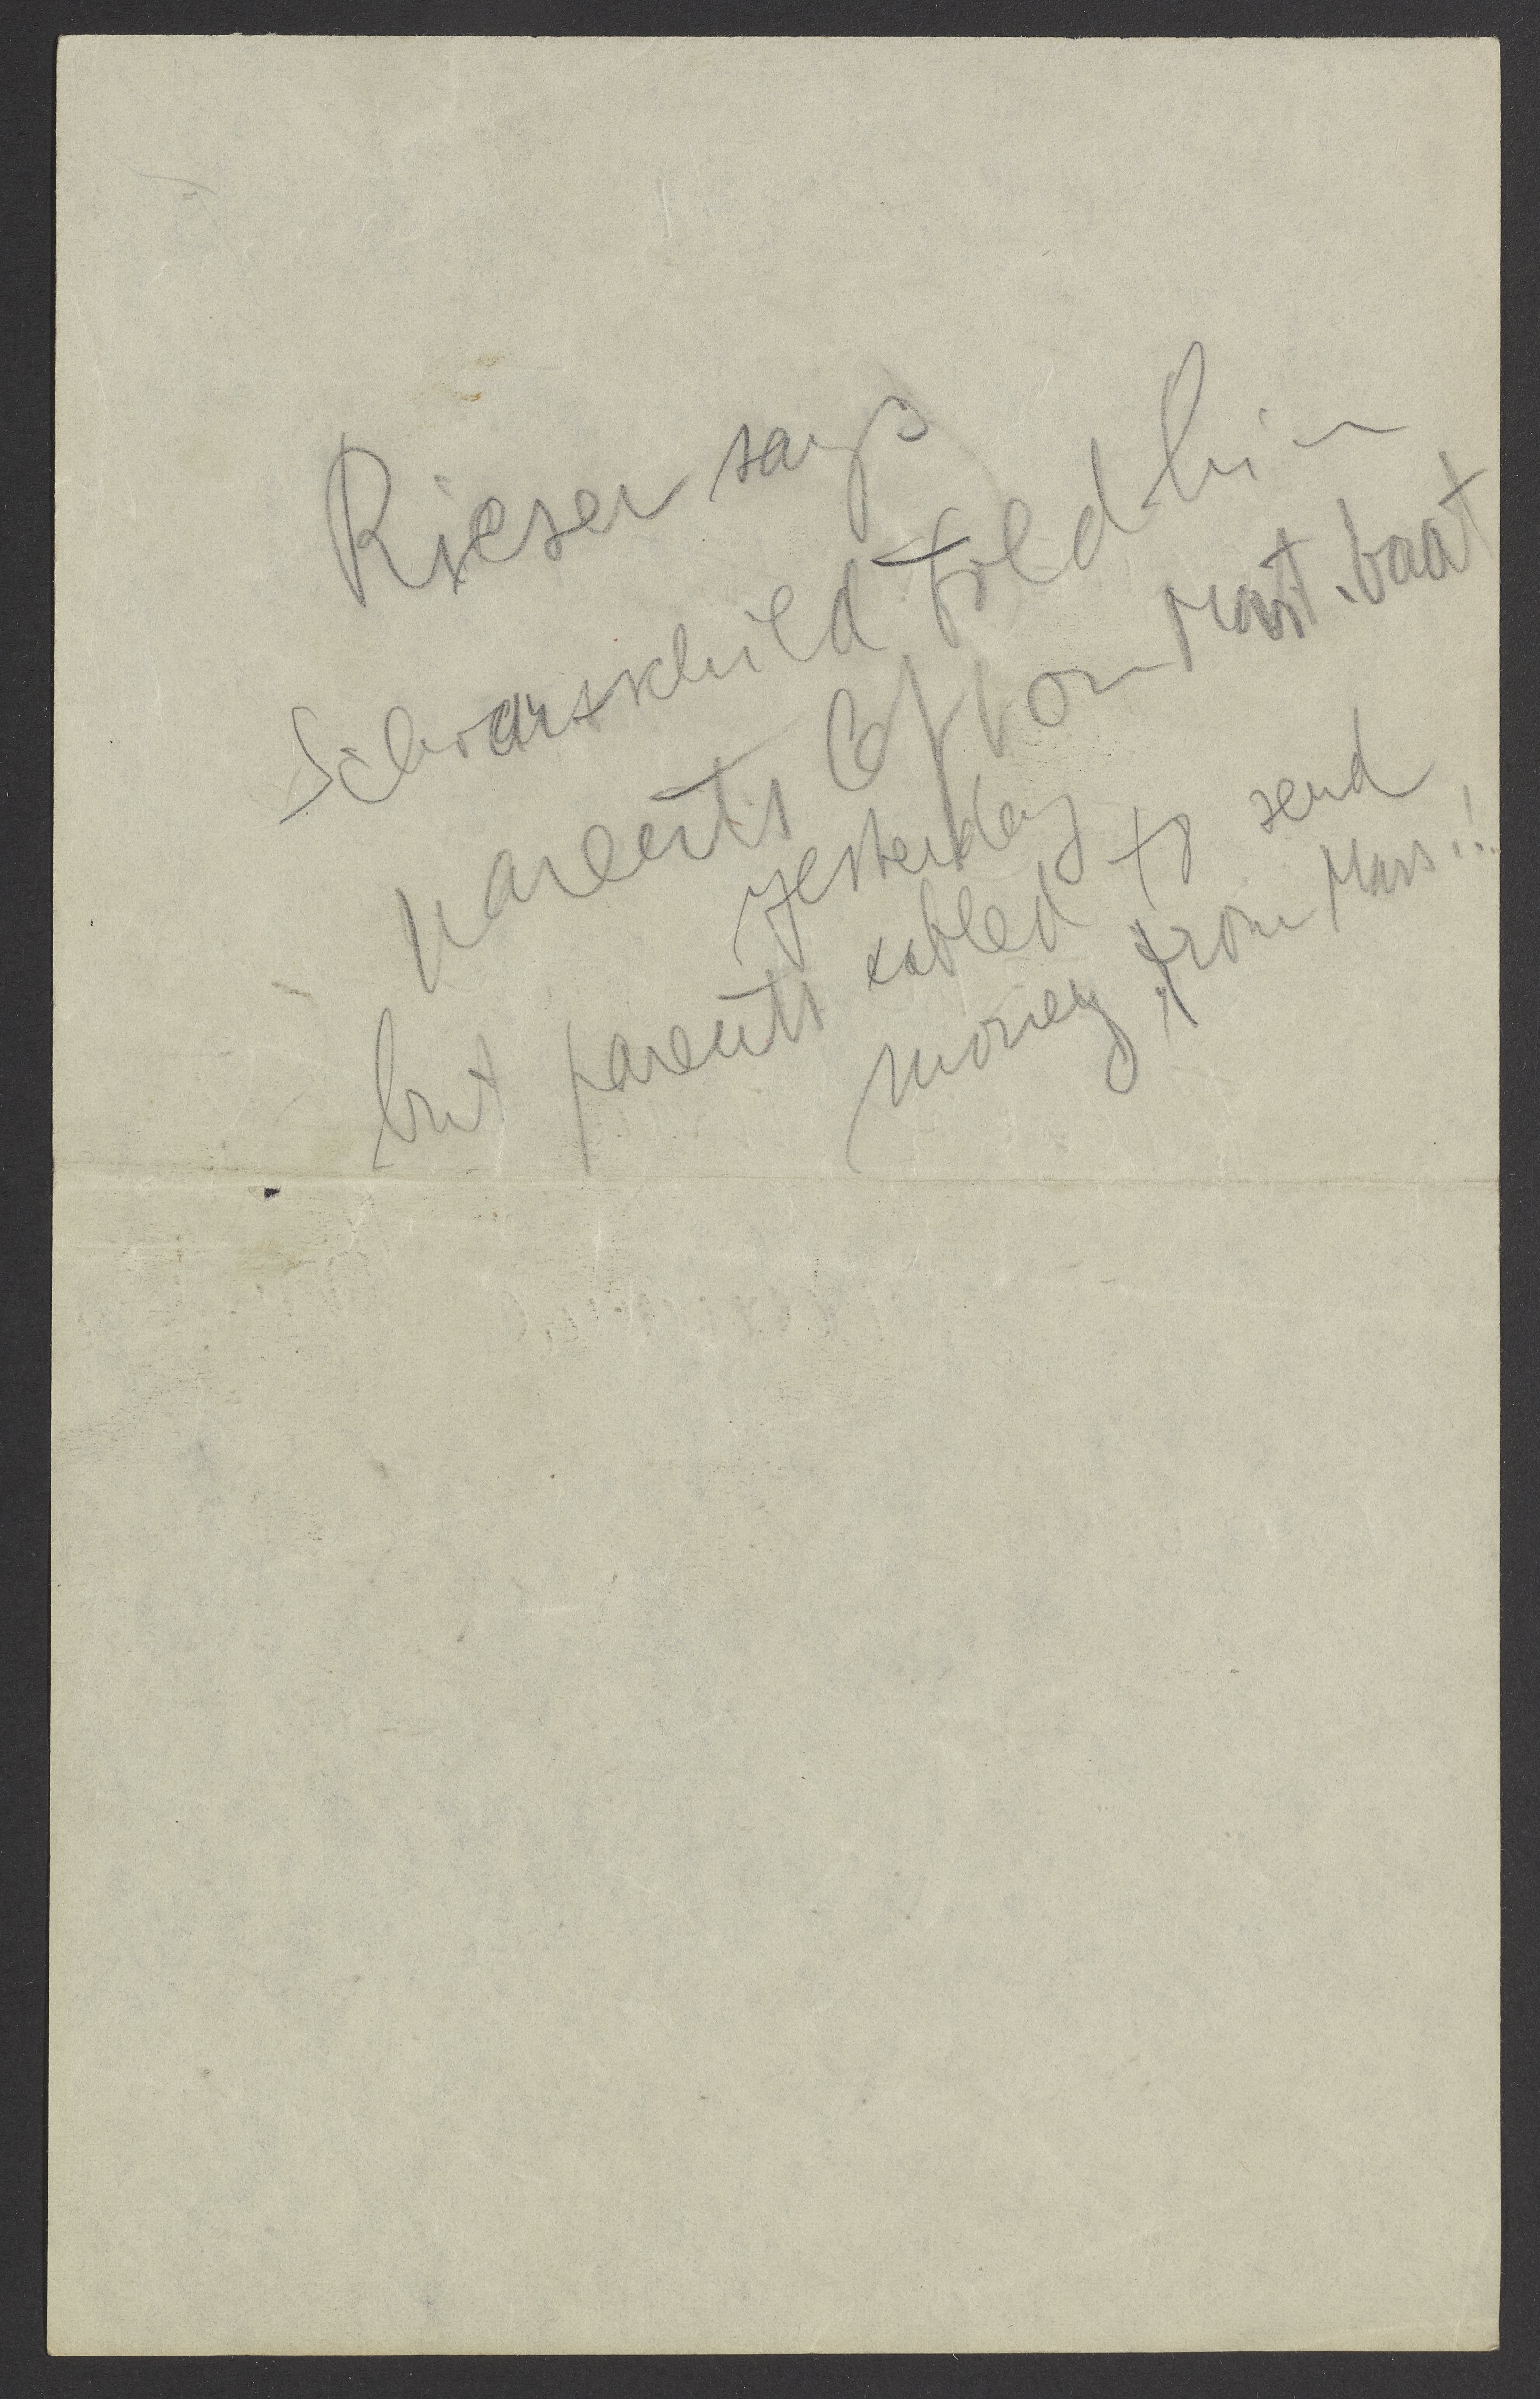 Rieser says
Schwarzschild told him
parents left on Mart. boat
yesterday
but parents cabled to send
money from Mars!!